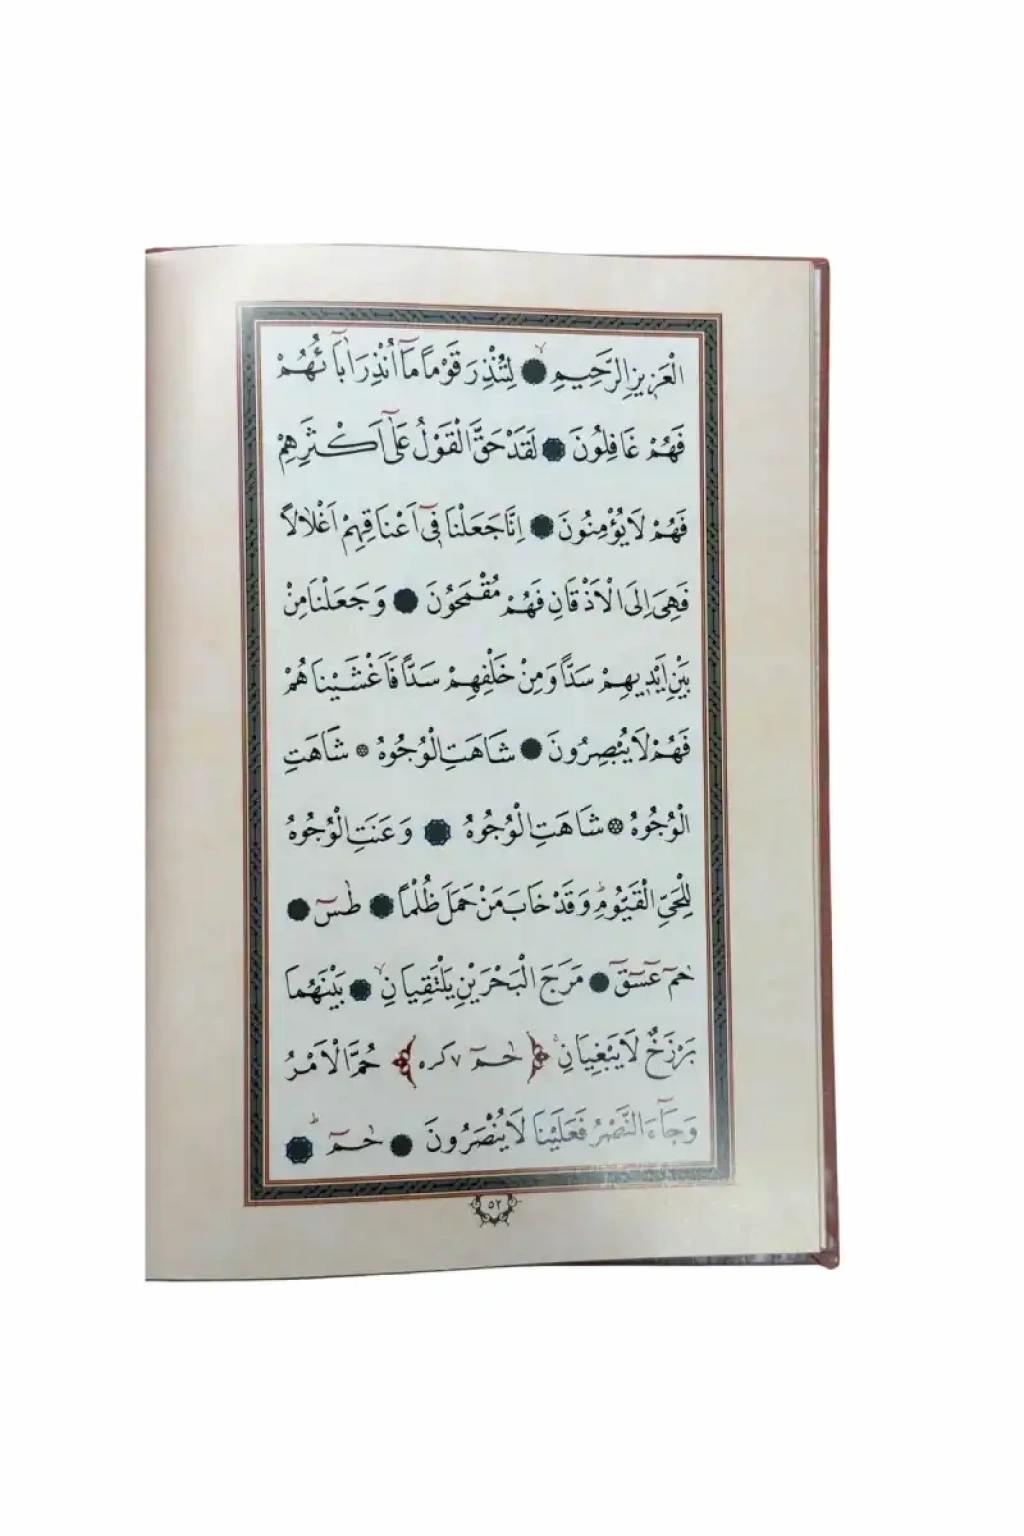 الْعَزِيزِ الرَّحِيمِ ۙ لِتُنْذِرَ قَوْمًا مَآ اُنْذِرَ اٰبَآؤُ۬هُمْ
فَهُمْ غَافِلُونَ لَقَدْ حَقَّ الْقَوْلُ عَلٰٓى اَكْثَرِهِمْ
فَهُمْ لَا يُؤْمِنُونَ اِنَّا جَعَلْنَا فِٓى اَعْنَاقِهِمْ اَغْلَالًا
فَهِىَ اِلَى الْاَذْقَانِ فَهُمْ مُقْمَحُونَ وَجَعَلْنَا مِنْ
بَيْنِ اَيْدِيهِمْ سَدًّا وَمِنْ خَلْفِهِمْ سَدًّا فَاَغْشَيْنَاهُمْ
فَهُمْ لَا يُبْصِرُونَ شَاهَتِ الْوُجُوهُ شَاهَتِ
الْوُجُوهُ شَاهَتِ الْوُجُوهُ وَعَنَتِ الْوُجُوهُ
لِلْحَىِّ الْقَيُّومِ وَقَدْ خَابَ مَنْ حَمَلَ ظُلْمًا طٰسٓ
حٰمٓ عٓسٓقٓ مَرَجَ الْبَحْرَيْنِ يَلْتَقِيَانِ ۙ بَيْنَهُمَا
بَرْزَخٌ لَا يَبْغِيَانِ ﴿حٰمٓ ٧ كره﴾ حُمَّ الْاَمْرُ
وَجَآءَ النَّصْرُ فَعَلَيْنَا لَا يُنْصَرُونَ حٰمٓ
٥٢